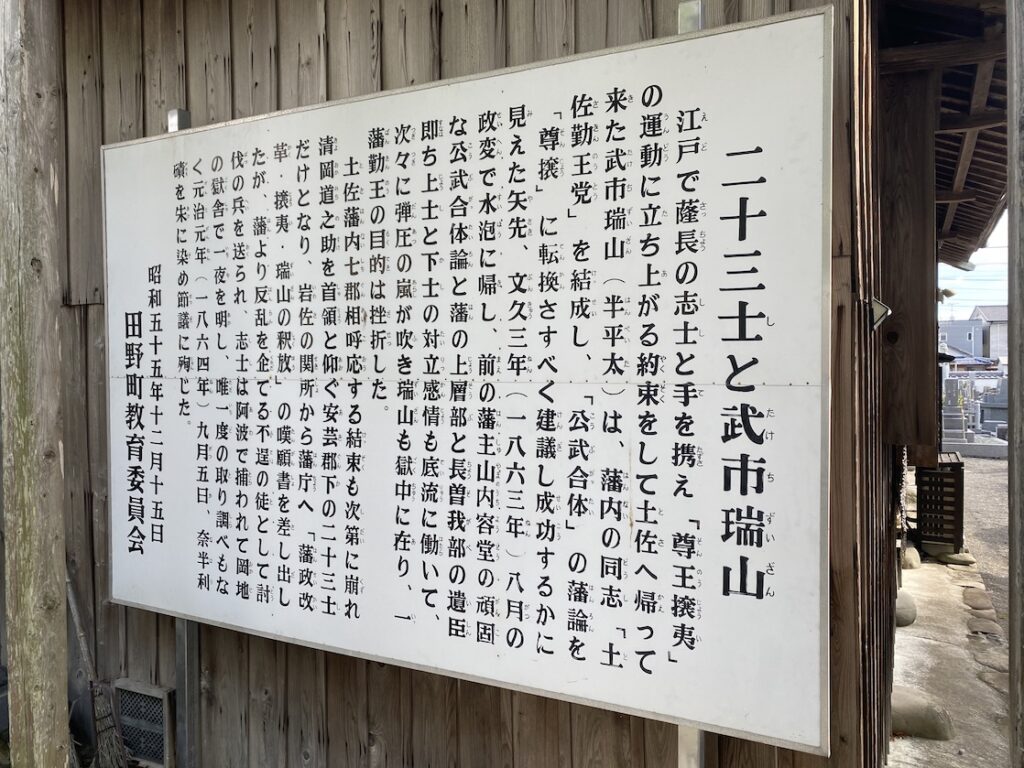 二十三士と武市瑞山
江戸で薩長の志士と手を携え「尊王攘夷」
の運動に立ち上がる約束をして土佐へ帰って
来た武市瑞山(半平太)は、藩内の同志「土
佐勤王党」を結成し、「公武合体」の藩論を
「尊攘」に転換さすべく建議し成功するかに
見えた矢先、文久三年(一八六三年)八月の
政変で水泡に帰し、前の藩主山内容堂の頑固
な公武合体論と藩の上層部と長曽我部の遺臣
即ち上士と下士の対立感情も底流に働いて、
次々に弾圧の嵐が吹き瑞山も獄中に在り、一
藩勤王の目的は挫折した。
土佐藩内七郡相呼応する結束も次第に崩れ
清岡道之助を首領と仰ぐ安芸郡下の二十三士
だけとなり、岩佐の関所から藩庁へ「藩政改
革・攘夷・瑞山の釈放」の嘆願書を差し出し
たが、藩より反乱を企てる不逞の徒として討
伐の兵を送られ、志士は阿波で捕われて岡地
の獄舎で一夜を明し、唯一度の取り調べもな
く元治元年(一八六四年)九月五日、奈半利
磧を朱に染め節議に殉じた。
昭和五十五年十二月十五日
田野町教育委員会